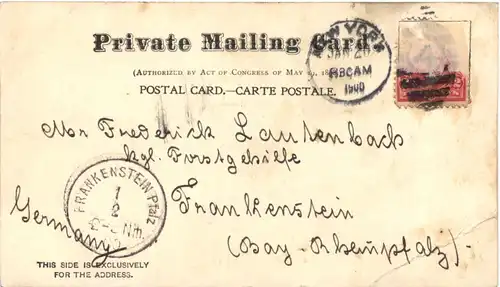 Private Mailing Card
(AUTHORIZED BY ACT OF CONGRESS OF MAY 19, 18
POSTAL CARD.—CARTE POSTALE.
NEW YORK
JAN 20
830AM
1900
Mr Frederick Lautenbach
kgl. Forstgehilfe
Frankenstein
(Bay. Rheinpfalz)
Germany
FRANKENSTEIN Pfalz
1
2
Nm.
THIS SIDE IS EXCLUSIVELY
FOR THE ADDRESS.